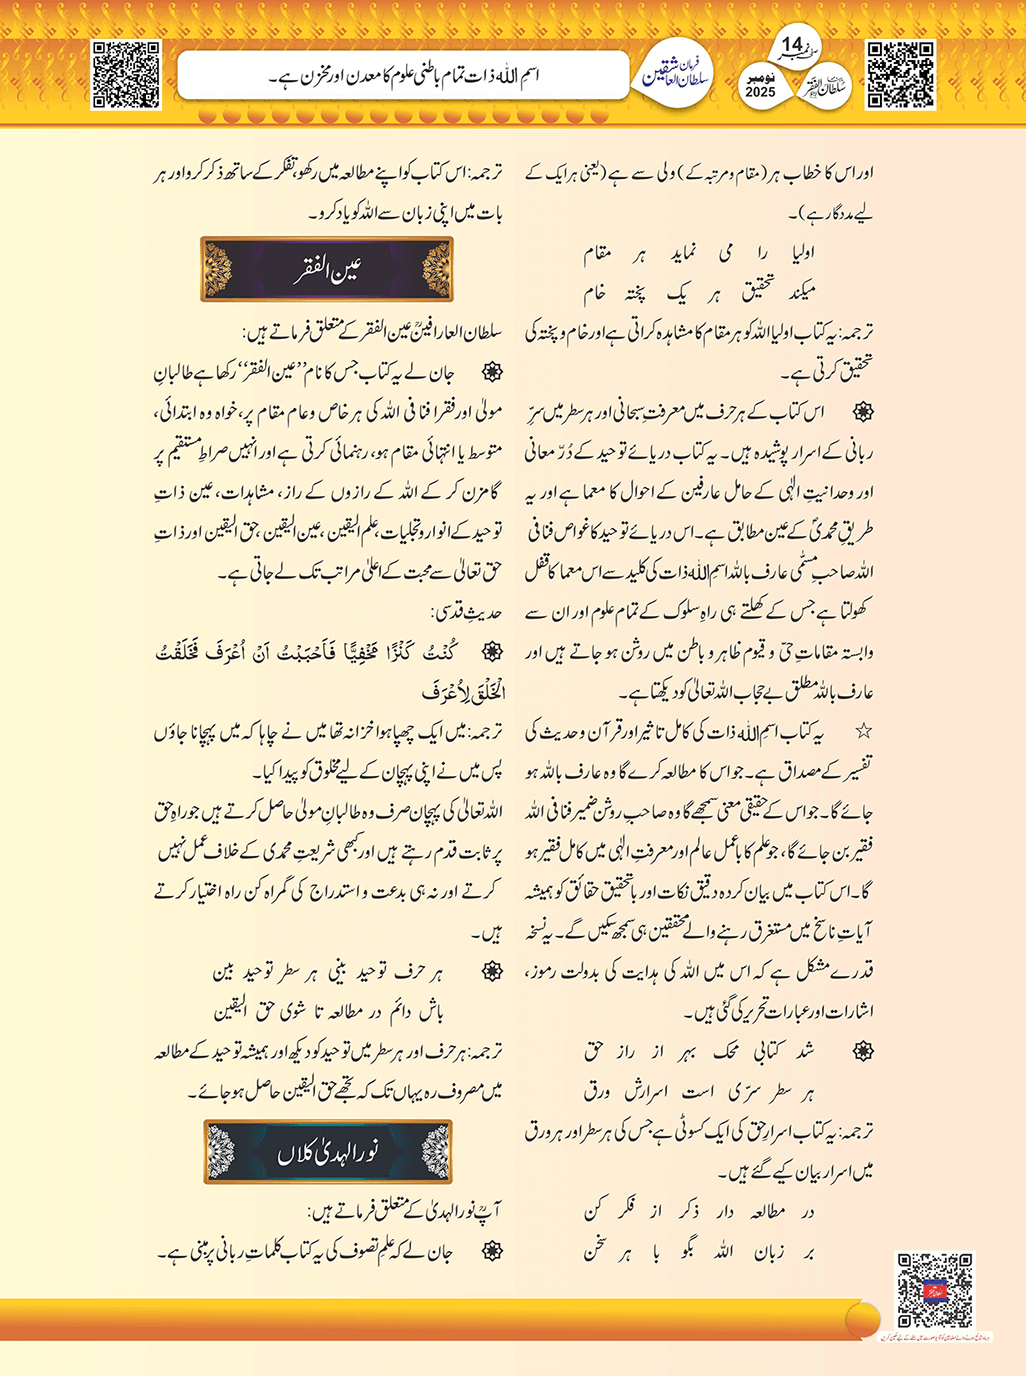 صفحہ نمبر 14
نومبر
2025
سلطان الفقر
فرمان
سلطان العاشقین
اسمِ اللہ ذات تمام باطنی علوم کا معدن اور مخزن ہے۔
اور اس کا خطاب ہر (مقام و مرتبہ کے) ولی سے ہے (یعنی ہر ایک کے
لیے مددگار ہے)۔
اولیا را می نماید ہر مقام
میکند تحقیق ہر یک پختہ خام
ترجمہ: یہ کتاب اولیا اللہ کو ہر مقام کا مشاہدہ کراتی ہے اور خام و پختہ کی
تحقیق کرتی ہے۔
اس کتاب کے ہر حرف میں معرفتِ سبحانی اور ہر سطر میں سرِّ
ربانی کے اسرار پوشیدہ ہیں۔ یہ کتاب دریائے توحید کے دُرّ معانی
اور وحدانیتِ الٰہی کے حامل عارفین کے احوال کا معما ہے اور یہ
طریقِ محمدیؐ کے عین مطابق ہے۔ اس دریائے توحید کا غواص فنا فی
اللہ صاحبِ مسمّٰی عارف باللہ اسمِ اللہ ذات کی کلید سے اس معما کا قفل
کھولتا ہے جس کے کھلتے ہی راہِ سلوک کے تمام علوم اور ان سے
وابستہ مقاماتِ حیّ و قیوم ظاہر و باطن میں روشن ہو جاتے ہیں اور
عارف باللہ مطلق بے حجاب اللہ تعالیٰ کو دیکھتا ہے۔
☆ یہ کتاب اسمِ اللہ ذات کی کامل تاثیر اور قرآن و حدیث کی
تفسیر کے مصداق ہے۔ جو اس کا مطالعہ کرے گا وہ عارف باللہ ہو
جائے گا۔ جو اس کے حقیقی معنی سمجھے گا وہ صاحبِ روشن ضمیر فنا فی اللہ
فقیر بن جائے گا، جو علم کا باعمل عالم اور معرفتِ الٰہی میں کامل فقیر ہو
گا۔ اس کتاب میں بیان کردہ دقیق نکات اور باتحقیق حقائق کو ہمیشہ
آیاتِ ناسخ میں مستغرق رہنے والے محققین ہی سمجھ سکیں گے۔ یہ نسخہ
قدرے مشکل ہے کہ اس میں اللہ کی ہدایت کی بدولت رموز،
اشارات اور عبارات تحریر کی گئی ہیں۔
شد کتابی محک بہر از راز حق
ہر سطر سرّی است اسرارش ورق
ترجمہ: یہ کتاب اسرارِ حق کی ایک کسوٹی ہے جس کی ہر سطر اور ہر ورق
میں اسرار بیان کیے گئے ہیں۔
در مطالعہ دار ذکر از فکر کن
بر زبان اللہ بگو با ہر سخن
ترجمہ: اس کتاب کو اپنے مطالعہ میں رکھو، تفکر کے ساتھ ذکر کرو اور ہر
بات میں اپنی زبان سے اللہ کو یاد کرو۔
عین الفقر
سلطان العارفینؒ عین الفقر کے متعلق فرماتے ہیں:
جان لے یہ کتاب جس کا نام ’’عین الفقر‘‘ رکھا ہے طالبانِ
مولیٰ اور فقرا فنا فی اللہ کی ہر خاص و عام مقام پر، خواہ وہ ابتدائی،
متوسط یا انتہائی مقام ہو، رہنمائی کرتی ہے اور انہیں صراطِ مستقیم پر
گامزن کر کے اللہ کے رازوں کے راز، مشاہدات، عین ذاتِ
توحید کے انوار و تجلیات، علم الیقین، عین الیقین، حق الیقین اور ذاتِ
حق تعالیٰ سے محبت کے اعلیٰ مراتب تک لے جاتی ہے۔
حدیثِ قدسی:
كُنْتُ كَنْزًا مَخْفِيًّا فَأَحْبَبْتُ اَنْ اُعْرَفَ فَخَلَقْتُ
الْخَلْقَ لِاُعْرَفَ
ترجمہ: میں ایک چھپا ہوا خزانہ تھا میں نے چاہا کہ میں پہچانا جاؤں
پس میں نے اپنی پہچان کے لیے مخلوق کو پیدا کیا۔
اللہ تعالیٰ کی پہچان صرف وہ طالبانِ مولیٰ حاصل کرتے ہیں جو راہِ حق
پر ثابت قدم رہتے ہیں اور کبھی شریعتِ محمدی کے خلاف عمل نہیں
کرتے اور نہ ہی بدعت و استدراج کی گمراہ کن راہ اختیار کرتے
ہیں۔
ہر حرف توحید بینی ہر سطر توحید بین
باش دائم در مطالعہ تا شوی حق الیقین
ترجمہ: ہر حرف اور ہر سطر میں توحید کو دیکھ اور ہمیشہ توحید کے مطالعہ
میں مصروف رہ یہاں تک کہ تجھے حق الیقین حاصل ہو جائے۔
نور الہدیٰ کلاں
آپؒ نور الہدیٰ کے متعلق فرماتے ہیں:
جان لے کہ علمِ تصوف کی یہ کتاب کلماتِ ربانی پر مبنی ہے۔